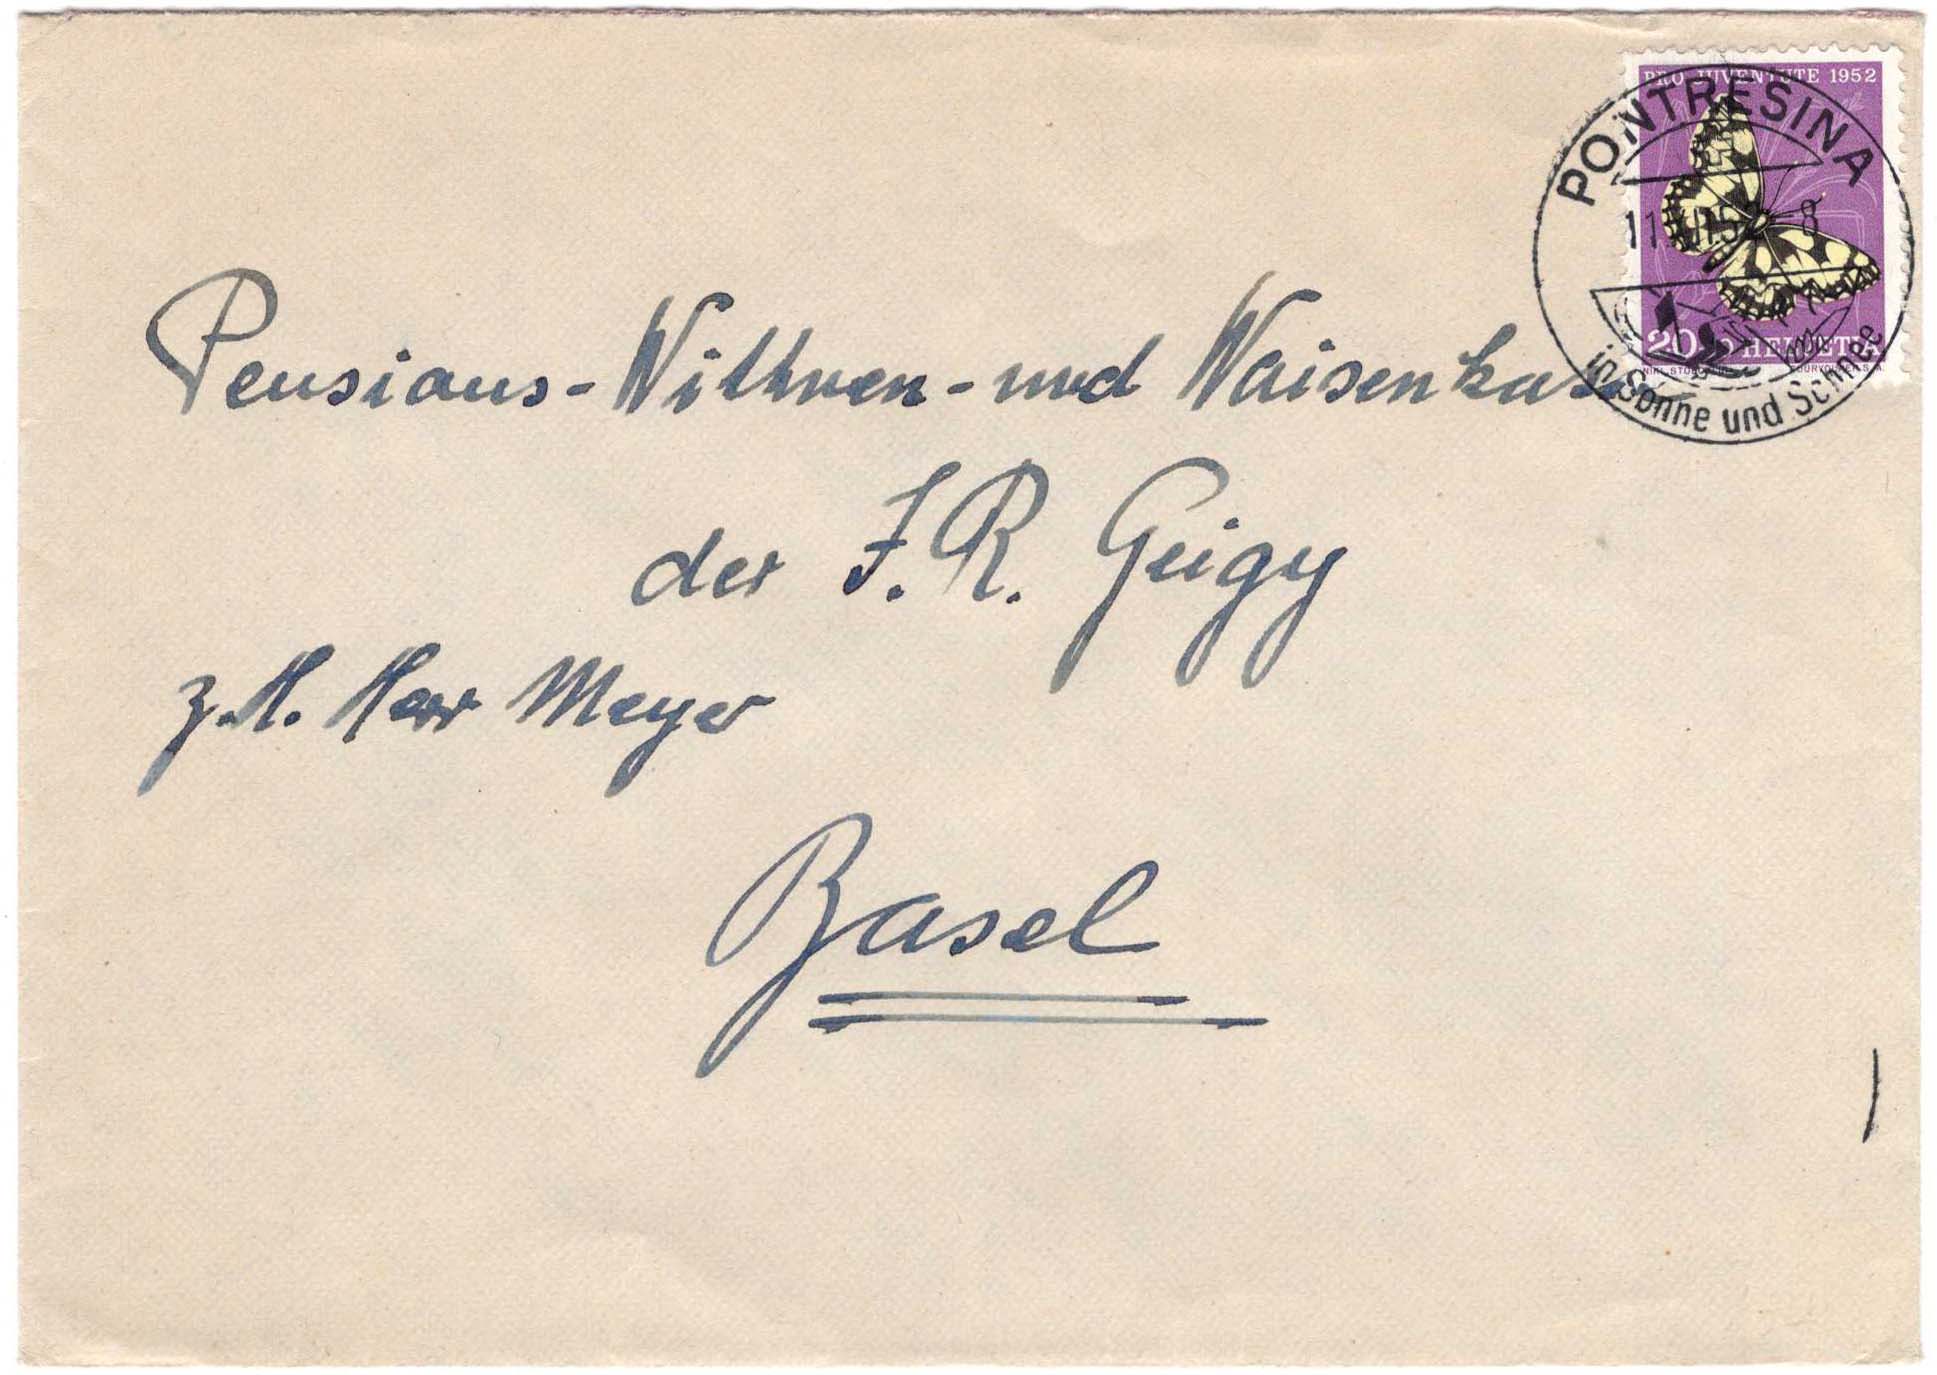 PRO JUVENTUTE 1952
PONTRESINA
11. 52 - 8
20 HELVETIA
in Sonne und Schnee
Pensions-Wittwen-und Waisenkasse
der J. R. Geigy
z. H. Herr Meyer
Basel